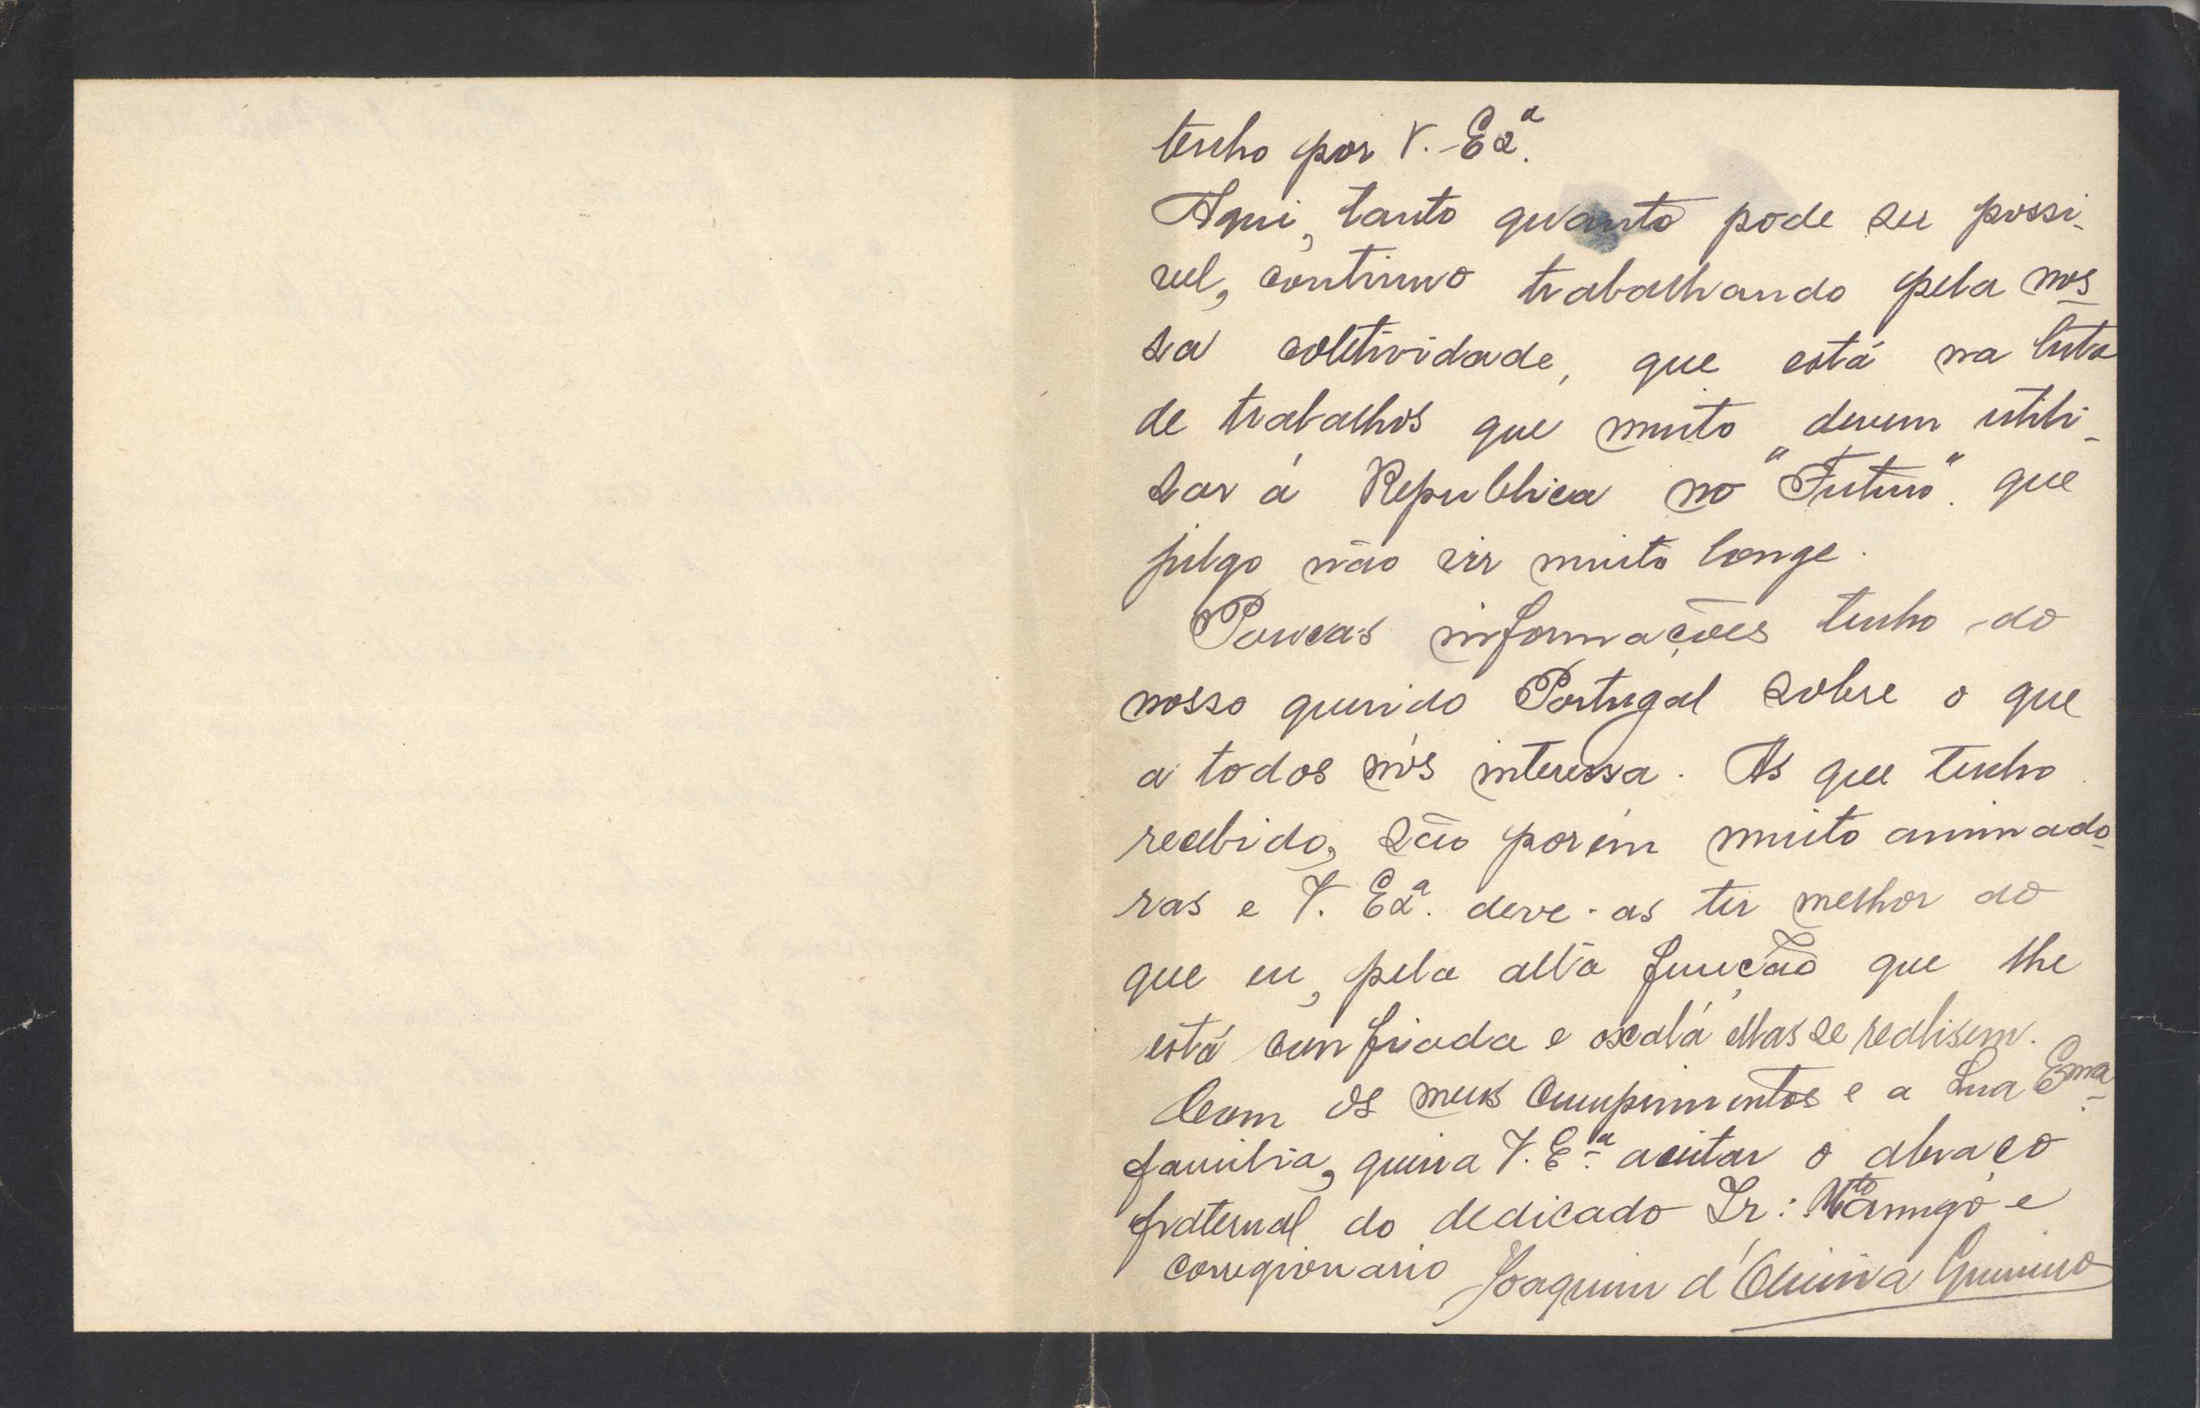 tenho por V. Exª.
Aqui, tanto quanto pode ser possi-
vel, continuo trabalhando pela nos
sa coletividade, que está na luta
de trabalhos que muito devem utili-
sar á Republica no "Futuro". que
julgo não vir muito longe.
Poucas informações tenho do
nosso querido Portugal sobre o que
a todos nós interessa. As que tenho
recebido, são porém muito animado-
ras e V. Exª. deve-as ter melhor do
que eu, pela alta função que lhe
está confiada e oxalá ellas se realisem.
Com os meus cumprimentos e a Sua Exma
familia, queira V. Eª. aceitar o abraço
fraternal do dedicado Ir: Mto amigo e
correegionario Joaquim d'Oliveira Guerreiro